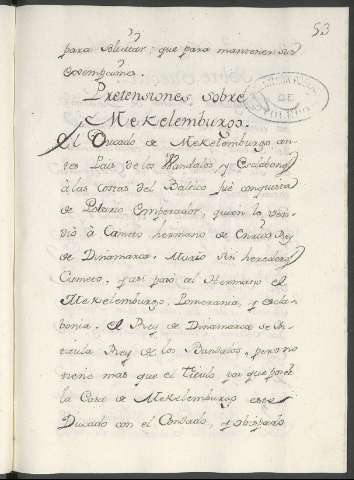 53
para solicitar, que para mantener sus
esempciones.
Pretensiones sobre
Mekelemburgo.
El Ducado de Mekelemburgo, an-
tes Pais de los Wandalos y Esclabones
à las costas del Baltico fué conquista
de Lotario Emperador, quien lo ven-
dió à Canuto hermano de Enrico Rey
de Dinamarca. Murio sin heredero
Canuto, y asi pasó al Hermano el
Mekelemburgo, Pomerania, y Escla-
bonia. El Rey de Dinamarca se in-
titula Rey de los Bandalos, pero no
tiene mas que el titulo ya que poseè
la Casa de Mekelemburgo este
Ducado con el Condado, y obispado
DE
TOLEDO